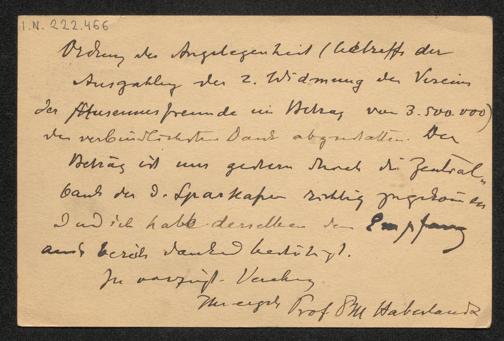 I.N. 222.466
Ordnung der Angelegenheit (betreffs der
Auszahlung der 2. Widmung des Vereins
der Museumsfreunde im Betrag von 3.500.000)
den verbindlichsten Dank abzustatten. Der
Betrag ist uns gestern durch die Zentral-
bank der d. Sparkassen richtig zugekommen
und ich habe derselben den Empfang
auch bereits dankend bestätigt.
In vorzügl.
Ihr ergeb. Prof. Dr M Haberlandt